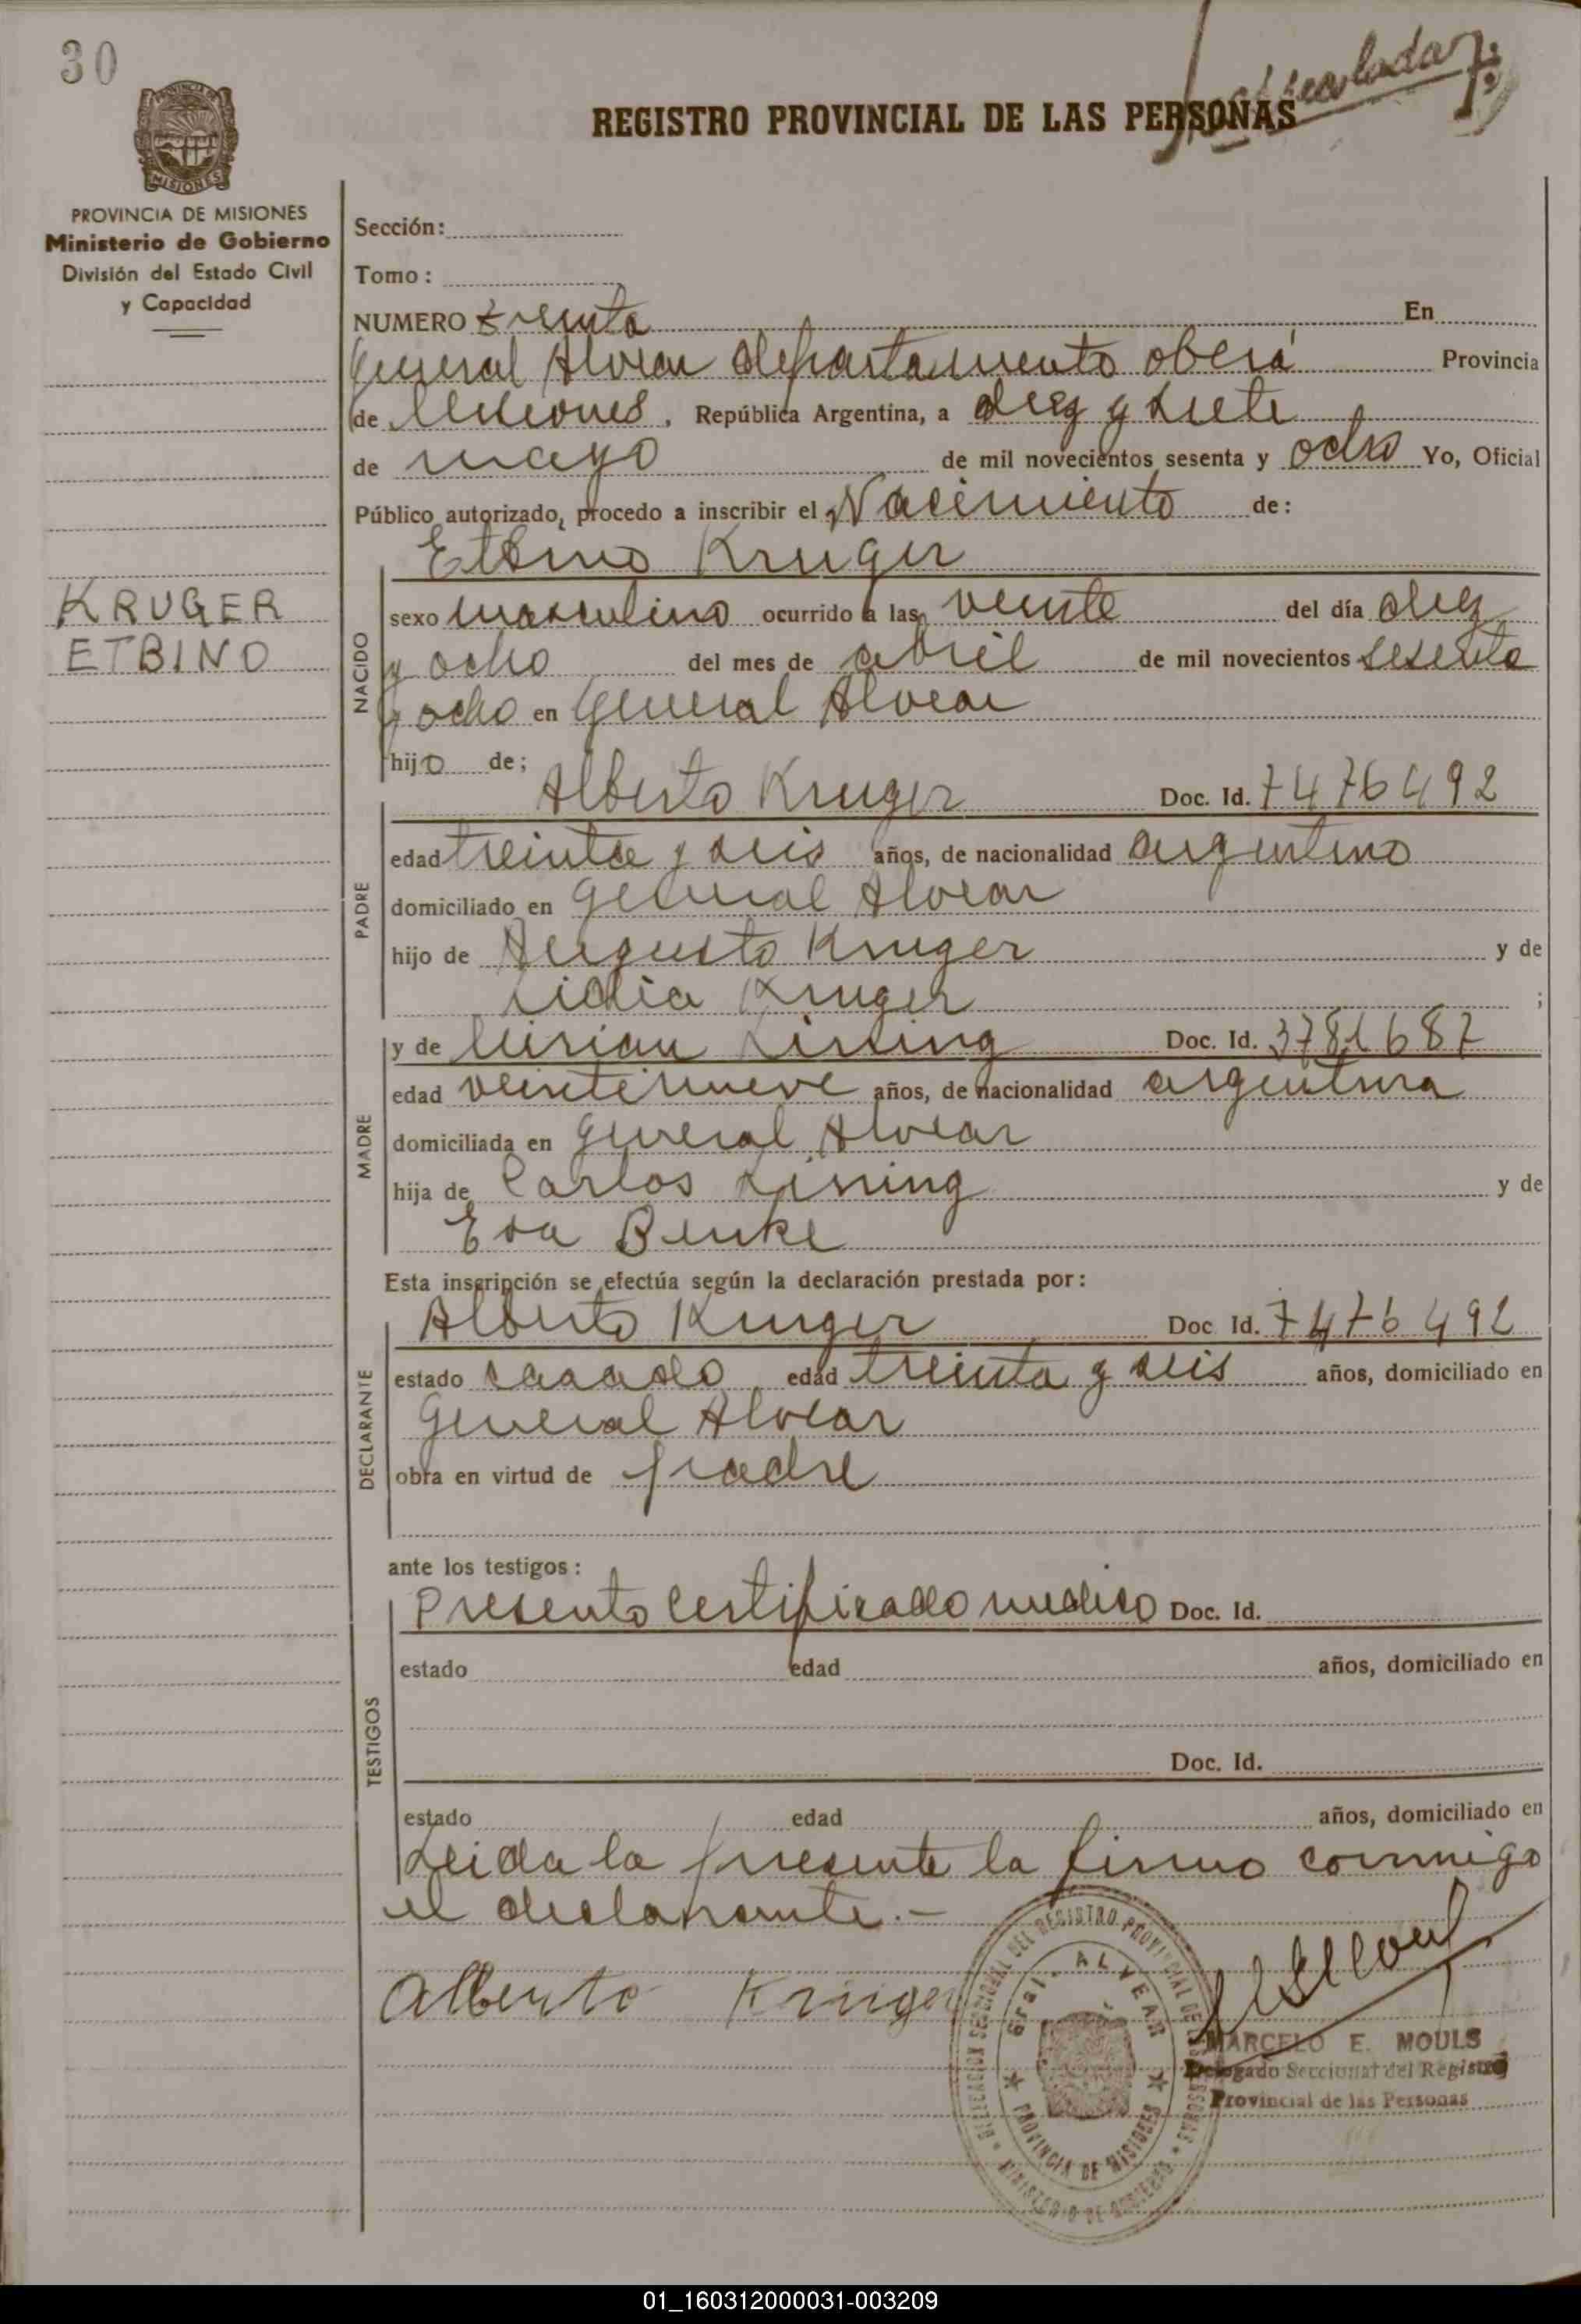 30
REGISTRO PROVINCIAL DE LAS PERSONAS
MISIONES
PROVINCIA DE MISIONES
Ministerio de Gobierno
División del Estado Civil
y Capacidad
KRUGER
ETBINO
Sección:
Tomo:
NUMERO treinta En
General Alvear departamento oberá Provincia
de Misiones, República Argentina, a diez y siete
de mayo de mil novecientos sesenta y ocho Yo, Oficial
Público autorizado, procedo a inscribir el Nacimiento de:
NACIDO
Etbino Kruger
sexo masculino ocurrido a las veinte del día diez
y ocho del mes de abril de mil novecientos sesenta
y ocho en General Alvear
hijo de;
PADRE
Alberto Kruger Doc. Id. 7476492
edad treinta y seis años, de nacionalidad argentino
domiciliado en General Alvear
hijo de Augusto Kruger y de
Lidia Kruger ;
MADRE
y de Mirian Doc. Id. 3781687
edad veintinueve años, de nacionalidad argentina
domiciliada en General Alvear
hija de Carlos y de
Eva Benke
Esta inscripción se efectúa según la declaración prestada por:
DECLARANTE
Alberto Kruger Doc Id. 7476492
estado casado edad treinta y seis años, domiciliado en
General Alvear
obra en virtud de padre
ante los testigos:
TESTIGOS
Presento certificado medico Doc. Id.
estado edad años, domiciliado en
Doc. Id.
estado edad años, domiciliado en
Leida la presente la firmo conmigo
el declarante.-
Alberto Krüger
DELEGACION SECCIONAL DEL REGISTRO PROVINCIAL DE LAS PERSONAS
Gral. ALVEAR
PROVINCIA DE MISIONES
MINISTERIO DE GOBIERNO
MARCELO E. MOULS
Delegado Seccional del Registro
Provincial de las Personas
01_160312000031-003209